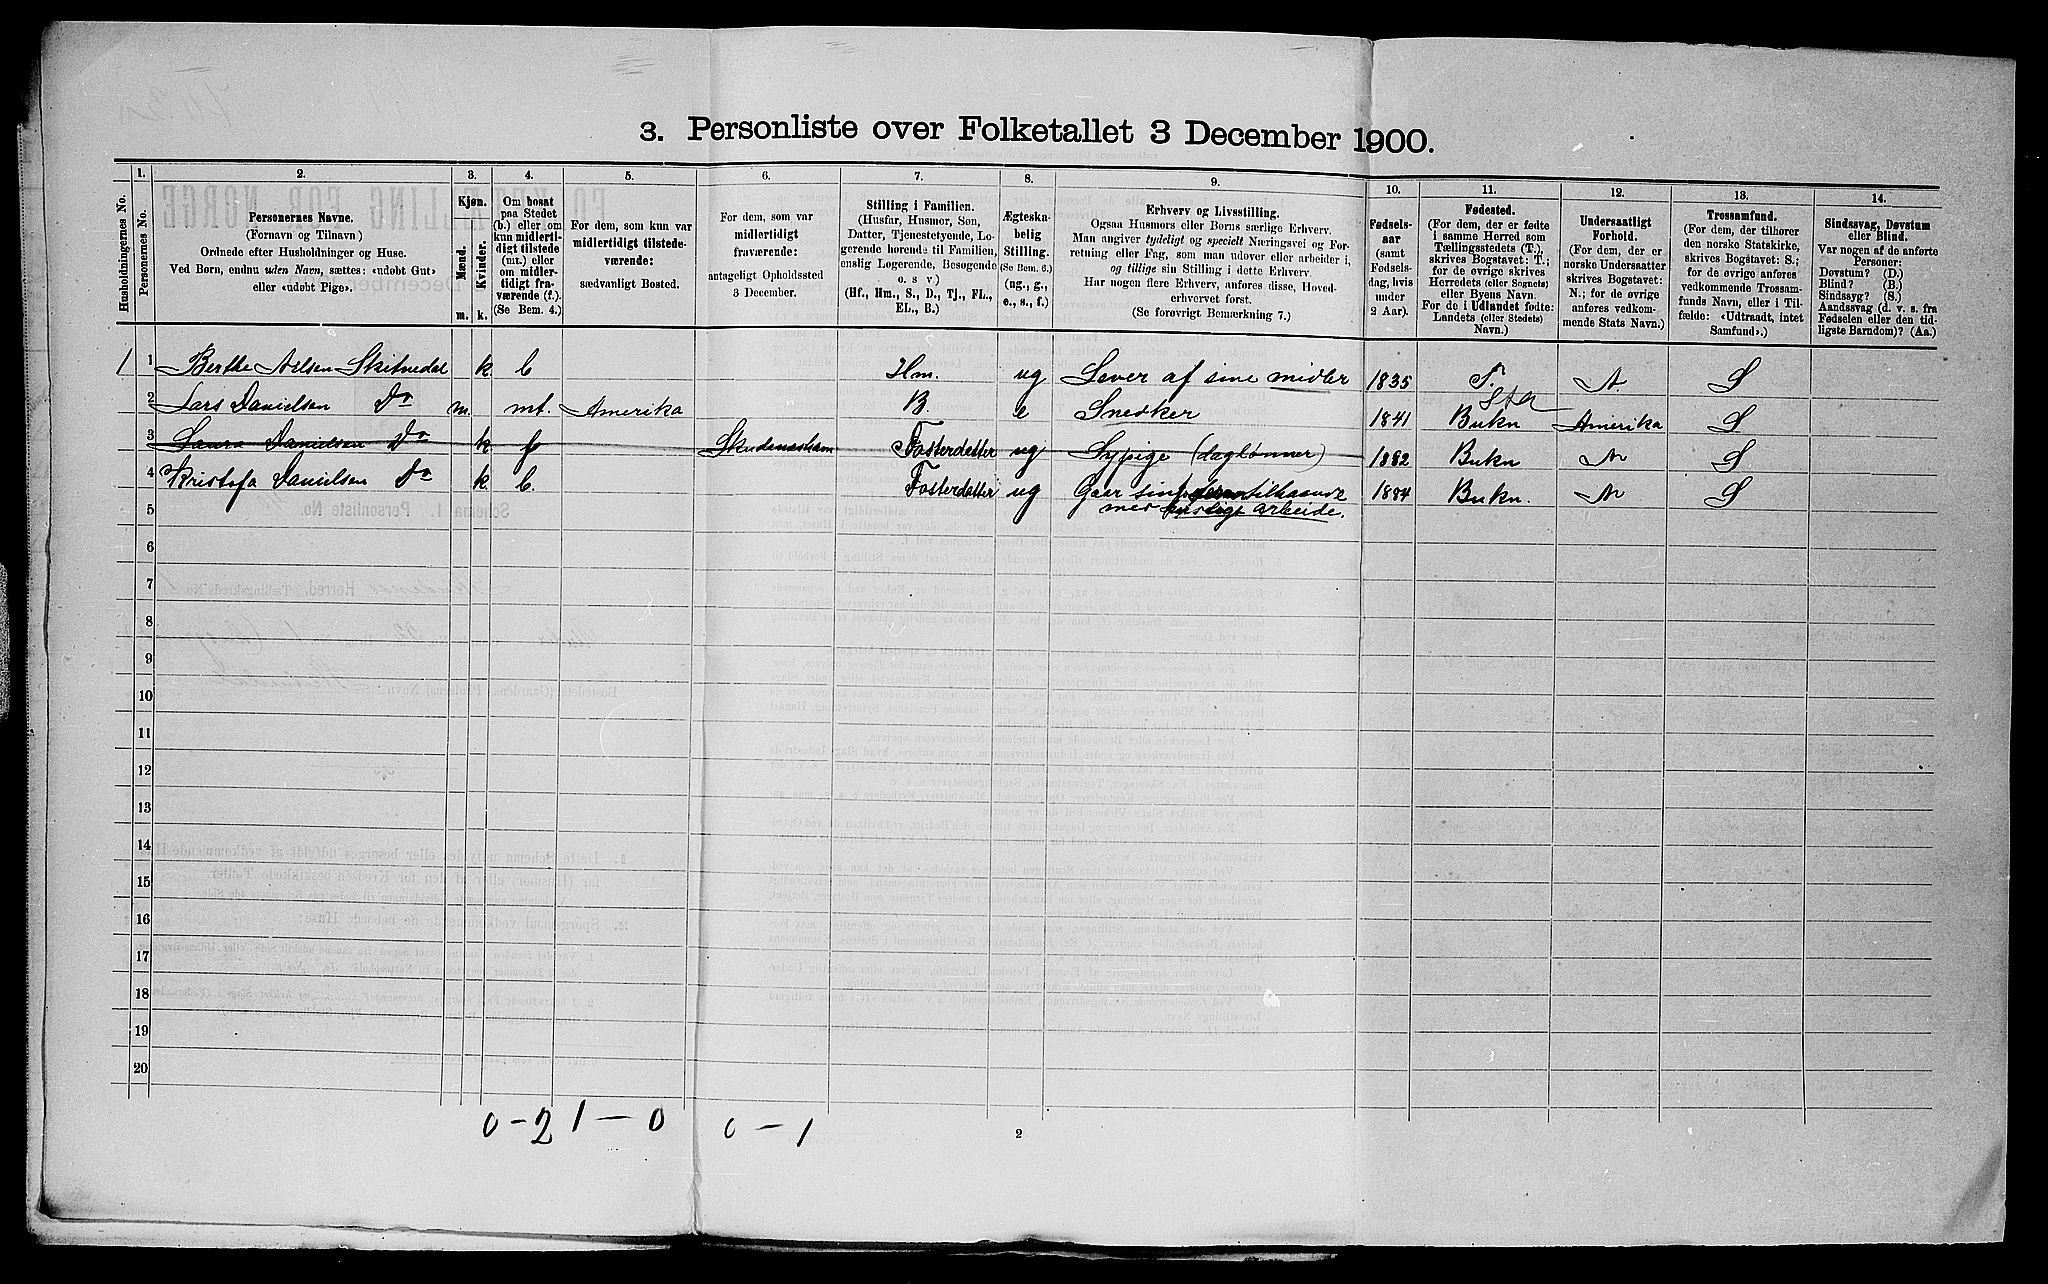 3. Personliste over Folketallet 3 December 1900.
Husholdningernes No.
1.
Personernes No.
2.
Personernes Navne.
(Fornavn og Tilnavn)
Ordnede efter Husholdninger og Huse.
Ved Børn, endnu uden Navn, sættes: «udøbt Gut»
eller «udøbt Pige».
3.
Kjøn.
Mænd.
Kvinder.
m.
k.
4.
Om bosat
paa Stedet
(b.) eller om
kun midlerti-
digt tilstede
(mt.) eller
om midler-
tidigt fra-
værende (f.).
(Se Bem. 4.)
5.
For dem, som kun var
midlertidigt tilstede-
værende:
sædvanligt Bosted.
6.
For dem, som var
midlertidigt
fraværende:
antageligt Opholdssted
3 December.
7.
Stilling i Familien.
(Husfar, Husmor, Søn,
Datter, Tjenestetyende, Lo-
gerende hørende til Familien,
enslig Logerende, Besøgende
o. s. v.)
(Hf., Hm., S., D., Tj., FL.,
EL., B.)
8.
Ægteska-
belig
Stilling.
(Se Bem. 6.)
(ug., g.,
e., s., f.)
9.
Erhverv og Livsstilling.
Ogsaa Husmors eller Børns særlige Erhverv.
Man angiver tydeligt og specielt Næringsvei og For-
retning eller Fag, som man udover eller arbeider i,
og tillige sin Stilling i dette Erhverv.
Har nogen flere Erhverv, anføres disse, Hoved-
erhvervet først.
(Se forøvrigt Bemærkning 7.)
10.
Fødsels-
aar
(samt
Fødsels-
dag, hvis
under
2 Aar).
11.
Fødested.
(For dem, der er fødte
i samme Herred som
Tællingsstedets (T.),
skrives Bogstavet: T.;
for de øvrige skrives
Herredets (eller Sognets)
eller Byens Navn.
For de i Udlandet fødte:
Landets (eller Stedets)
Navn.)
12.
Undersaatligt
Forhold.
(For dem, der er
norske Undersaatter
skrives Bogstavet:
N.; for de øvrige
anføres vedkom-
mende Stats Navn.)
13.
Trossamfund.
(For dem, der tilhører
den norske Statskirke,
skrives Bogstavet: S.;
for de øvrige anføres
vedkommende Trossam-
funds Navn, eller i Til-
fælde: «Udtraadt, intet
Samfund».)
14.
Sindssvag, Døvstum
eller Blind.
Var nogen af de anførte
Personer:
Døvstum? (D.)
Blind? (B.)
Sindssyg? (S.)
Aandssvag (d. v. s. fra
Fødselen eller den tid-
ligste Barndom)? (Aa.)
1 1 Berthe Skitnedal k b Hm. ug Lever af sine midler 1835 T. N. S
2 Lars Danielsen Do m. mt. Amerika B. e Snedker 1841 Bukn Amerika S
3 Laura Danielsen Do k f Skudeneshavn Fosterdatter ug Sypige (daglønner) 1882 Bukn N S
4 Kristofa Danielsen Do k b. Fosterdatter ug Gaar sin tilhaande 1884 Bukn. N S
5 med huslige arbeide.
6
7
8
9
10
11
12
13
14
15
16
17
18
19
20
0-2 1-0 0-1
2